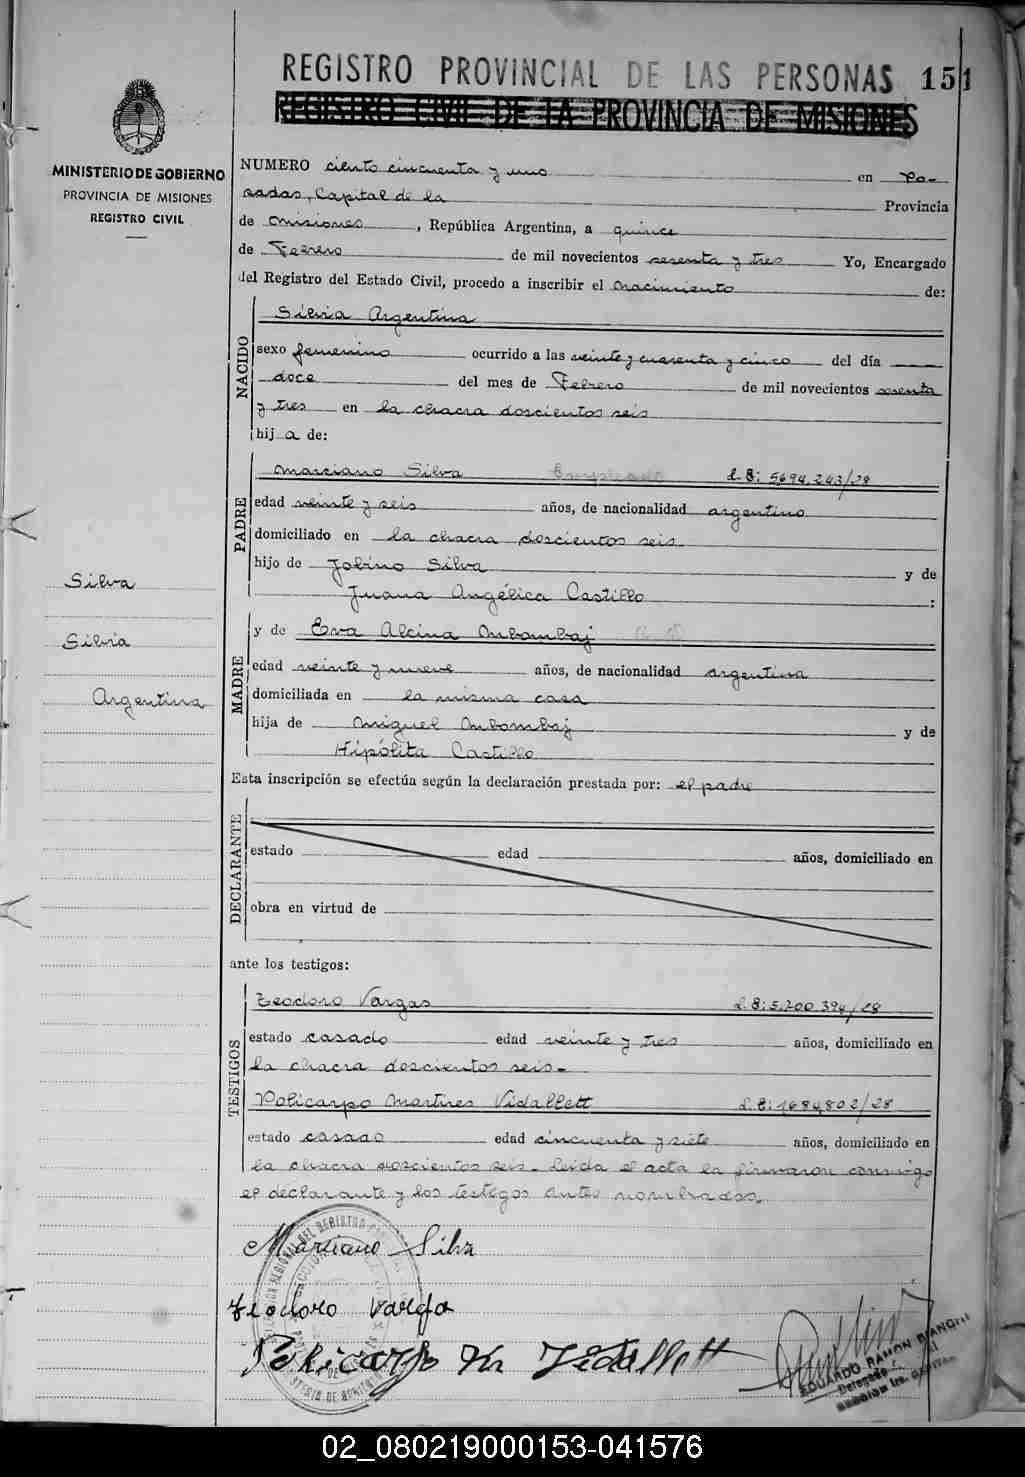 REGISTRO PROVINCIAL DE LAS PERSONAS 151
REGISTRO CIVIL DE LA PROVINCIA DE MISIONES
MINISTERIO DE GOBIERNO
PROVINCIA DE MISIONES
REGISTRO CIVIL
NUMERO ciento cincuenta y uno en Po-
sadas, Capital de la Provincia
de Misiones, República Argentina, a quince
de Febrero de mil novecientos sesenta y tres Yo, Encargado
del Registro del Estado Civil, procedo a inscribir el nacimiento de:
NACIDO
Silvia Argentina
sexo femenino ocurrido a las veinte y cuarenta y cinco del día
doce del mes de Febrero de mil novecientos sesenta
y tres en la chacra doscientos seis
hij a de:
PADRE
Marciano Silva Empleado L.E: 5.694.243/28
edad veinte y seis años, de nacionalidad argentino
domiciliado en la chacra doscientos seis
hijo de Jobino Silva y de
Juana Angélica Castillo :
Silva
Silvia
Argentina
MADRE
y de Eva Alcina Mbombaj
edad veinte y nueve años, de nacionalidad argentina
domiciliada en la misma casa
hija de Miguel Mbombaj y de
Hipólita Castillo
Esta inscripción se efectúa según la declaración prestada por: el padre
DECLARANTE
estado edad años, domiciliado en
obra en virtud de
ante los testigos:
TESTIGOS
Teodoro Vargas L.E: 5.700.394/28
estado casado edad veinte y tres años, domiciliado en
la chacra doscientos seis.-
Policarpo Martires Vidallett L.E: 1684802/28
estado casado edad cincuenta y siete años, domiciliado en
la chacra doscientos seis.- Leida el acta la firmaron conmigo
el declarante y los testigos antes nombrados.
Marciano Silva
Teodoro Varga
Policarpo M Vidallett
EDUARDO RAMON BIANCHI
Delegado
02_080219000153-041576